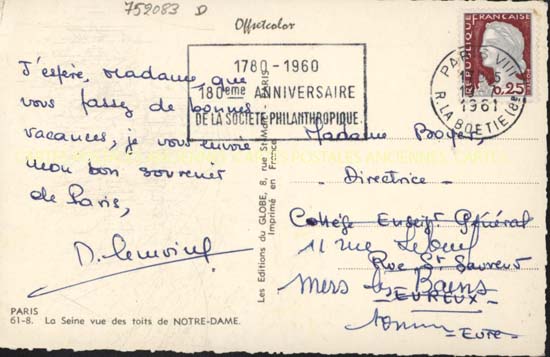 752083 D
Offsetcolor
RÉPUBLIQUE FRANÇAISE
0,25
PARIS VIII
1961
R. LA BOETIE (8e)
1780 - 1960
180eme ANNIVERSAIRE
DE LA SOCIETE PHILANTHROPIQUE
J'espère, Madame, que
vous passez de bonnes
vacances, je vous envoie
mon bon souvenir
de Paris,
D. Lemoine
Les Editions du GLOBE, 8, rue St-Marc - PARIS
Imprimé en France
Madame Boyer,
- Directrice -
Collège Enseigt Général
11 rue
Rue St Sauveur
Mers les Bains
EVREUX
Somme
Eure
PARIS
61-8. La Seine vue des toits de NOTRE-DAME.